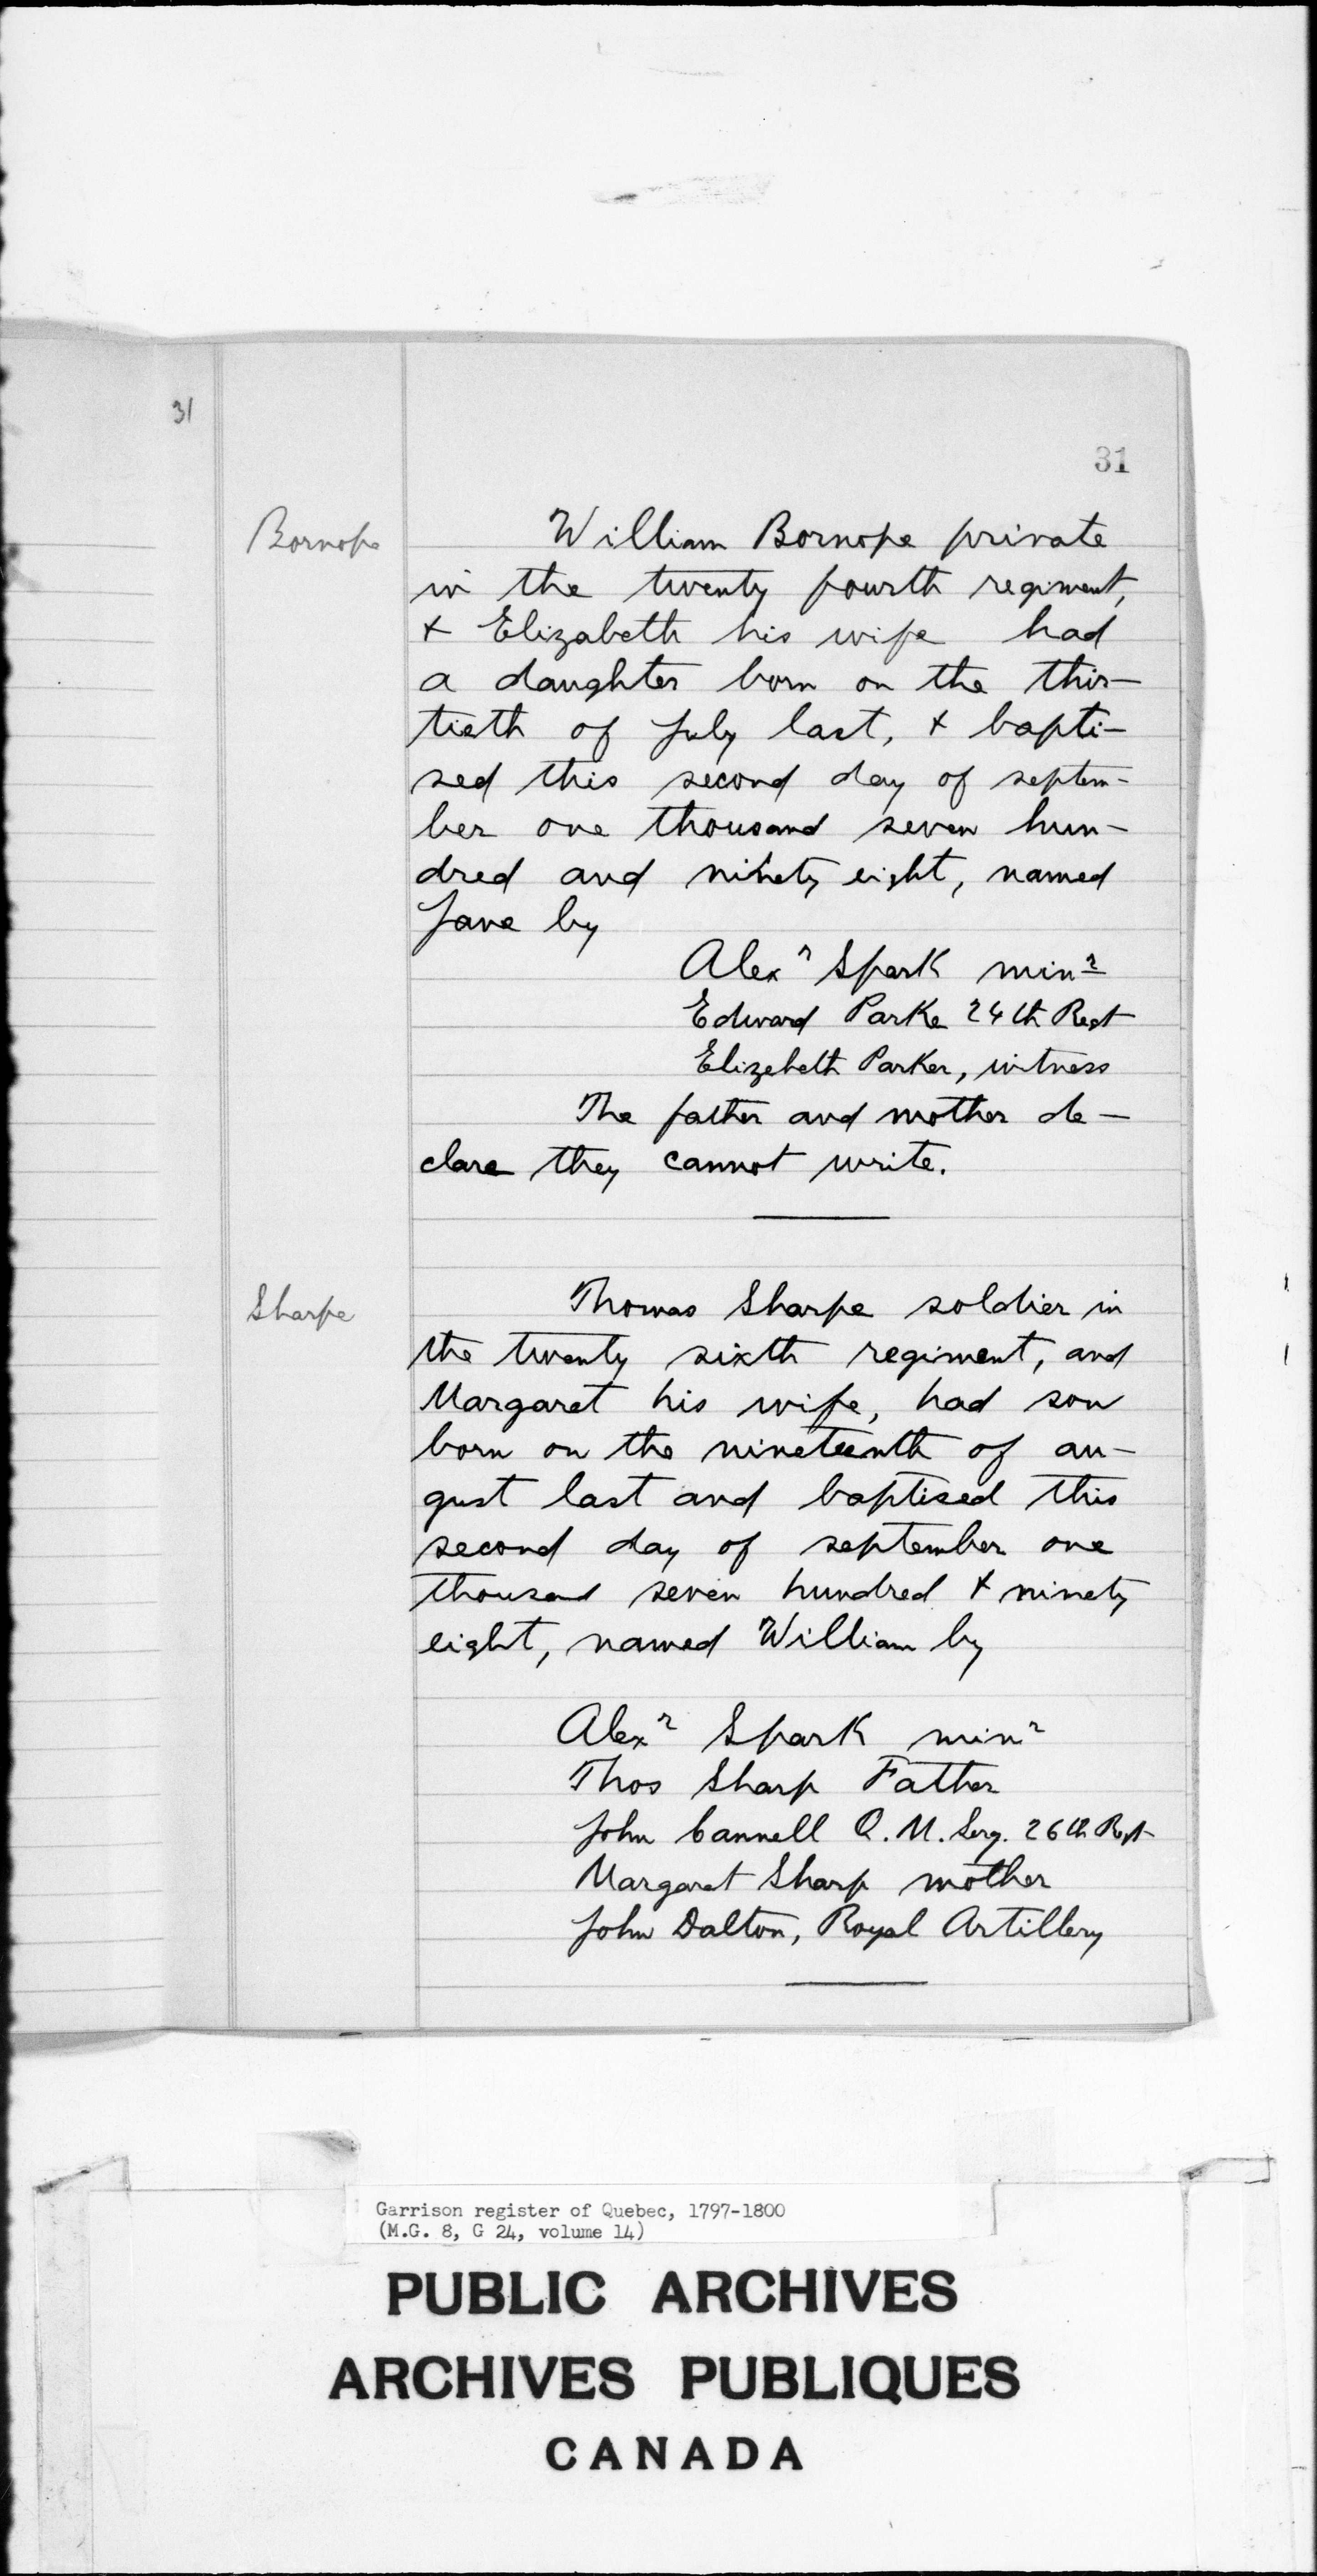 31
31
Bornope
William Bornope private
in the twenty fourth regiment,
& Elizabeth his wife had
a daughter born on the thir-
tieth of July last, & bapti-
sed this second day of septem-
ber one thousand seven hun-
dred and ninety eight, named
Jane by
Alexr Spark minr
Edward Parke 24th Regt
Elizebeth Parker, witness
The father and mother de-
clare they cannot write.
Sharpe
Thomas Sharpe soldier in
the twenty sixth regiment, and
Margaret his wife, had son
born on the nineteenth of au-
gust last and baptised this
second day of september one
thousand seven hundred & ninety
eight, named William by
Alexr Spark minr
Thos Sharp Father
John Cannell Q.M. Serg. 26th Regt
Margaret Sharp mother
John Dalton, Royal Artillery
Garrison register of Quebec, 1797-1800
(M.G. 8, G 24, volume 14)
PUBLIC ARCHIVES
ARCHIVES PUBLIQUES
CANADA